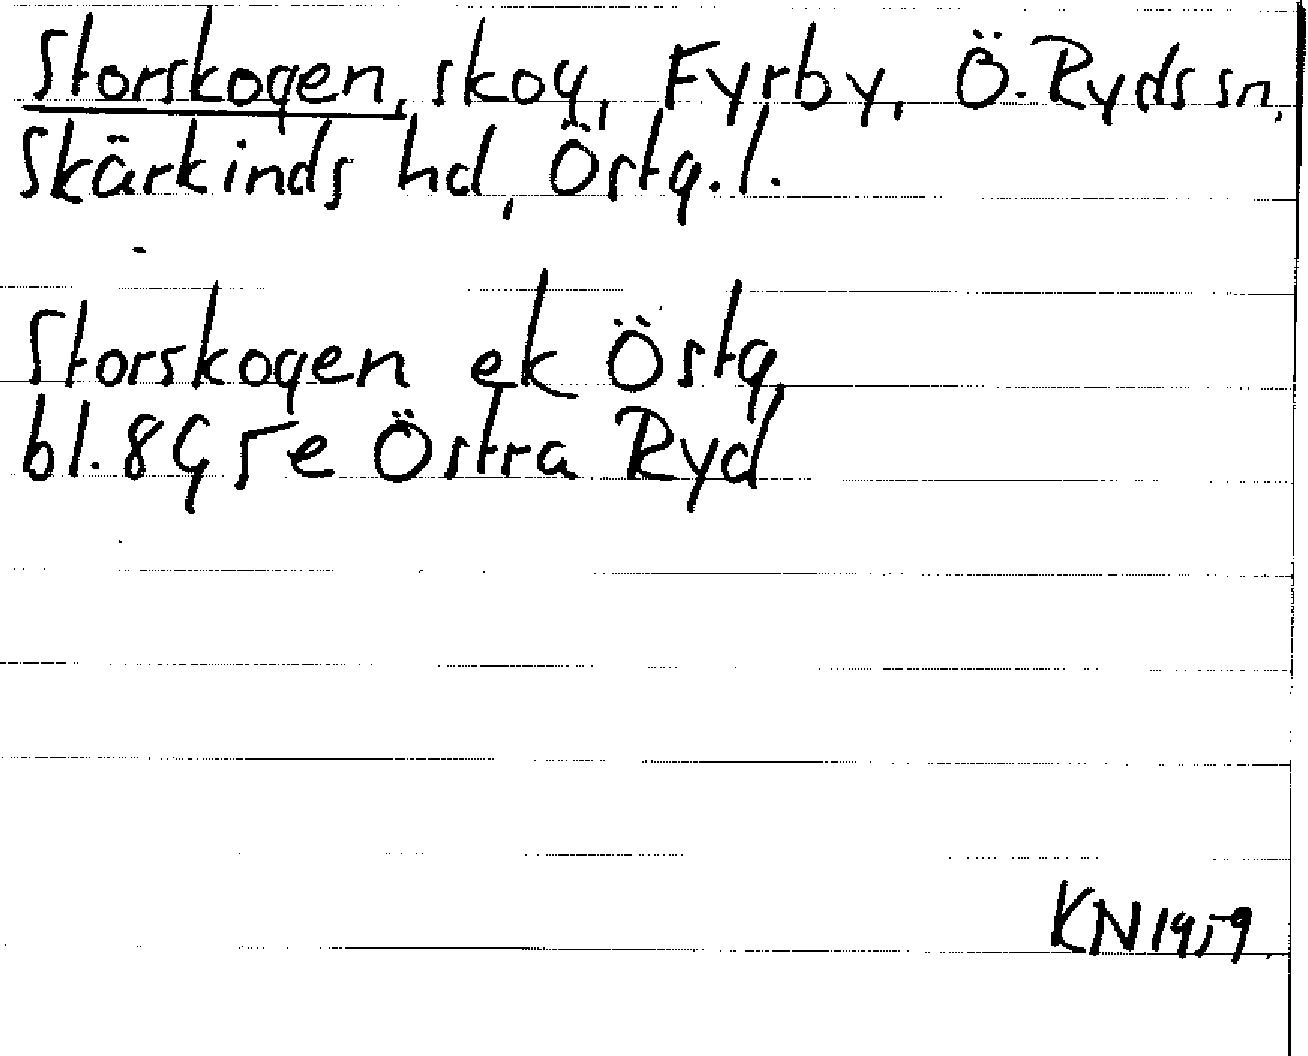 Storskogen, skog, Fyrby, Ö. Ryds sn,
Skärkinds hd, Östg.l.
Storskogen ek Östg,
bl. 8G 5e Östra Ryd
KN 1959.